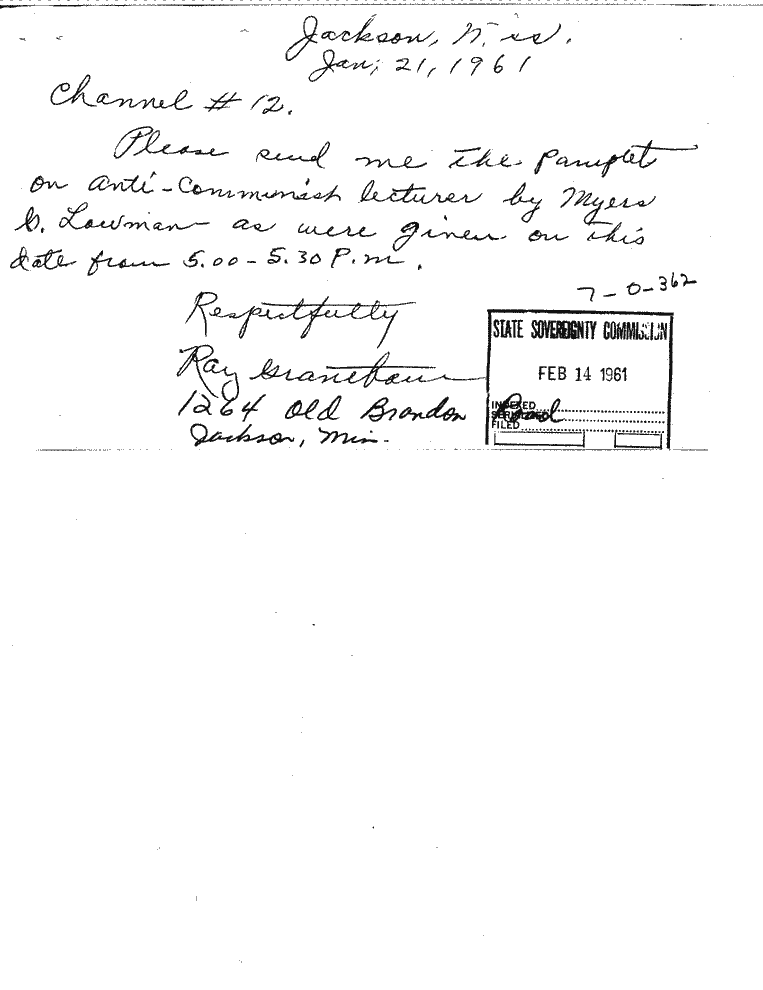 Jackson, Miss.
Jan; 21, 1961
Channel # 12.
Please send me the Pamplet
on Anti-Communish lecturer by Myers
G. Lowman as were given on this
date from 5.00 - 5.30 P.m.
7-0-362
Respectfully
STATE SOVEREIGNTY COMMISSION
Ray
FEB 14 1961
1264 Old Brandon Road
INDEXED
SERIALIZED
FILED
Jackson, Miss.